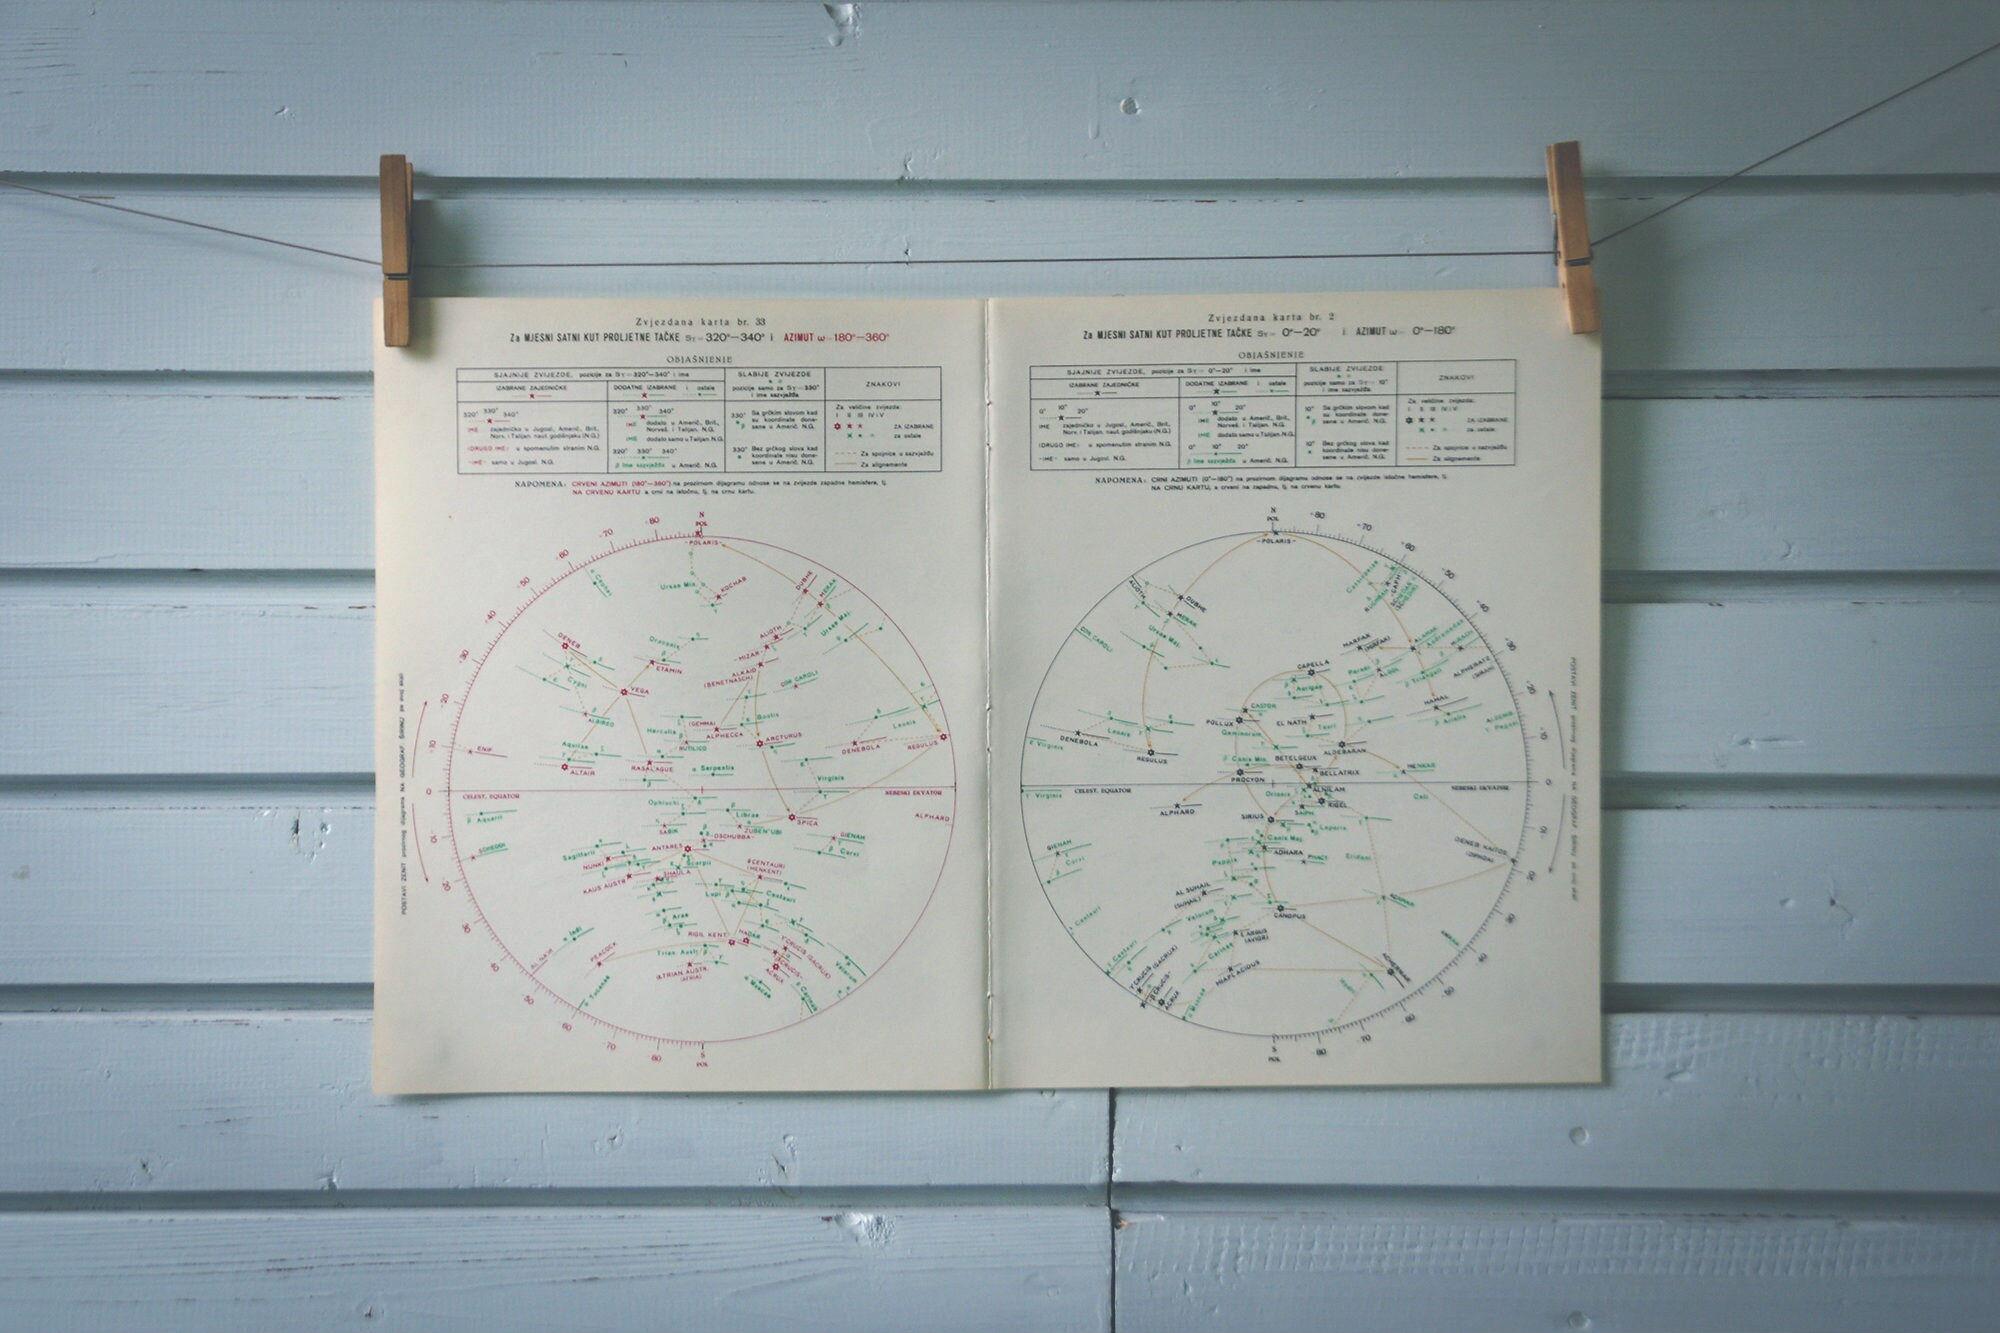 Zvjezdana karta br. 33
Za MJESNI SATNI KUT PROLJETNE TAČKE Sγ= 320°—340° i AZIMUT ω=180°—360°
OBJAŠNJENJE
SJAJNIJE ZVIJEZDE, pozicije za Sγ=320°—340° i ime
IZABRANE ZAJEDNIČKE
DODATNE IZABRANE i ostale
SLABIJE ZVIJEZDE
pozicije samo za Sγ=330°
i ime sazviježđa
ZNAKOVI
320° 330° 340°
IME zajedničko u Jugosl, Americ, Brit,
Norv. i Talijan. naut. godišnjaku (N.G.)
(DRUGO IME) u spomenutim stranim N.G.
-IME- samo u Jugosl. N.G.
320° 330° 340°
IME dodato u Americ, Brit,
Norveš. i Talijan. N.G.
IME dodato samo u Talijan. N.G.
320° 330° 340°
β Ime sazviježđa u Americ. N.G.
330° Sa grčkim slovom kad
su koordinate done-
sene u Americ. N.G.
330° Bez grčkog slova kad
koordinate nisu done-
sene u Americ. N.G.
Za veličine zvijezda:
I II III IV i V
ZA IZABRANE
za ostale
Za spojnice u sazviježđu
Za alignemente
NAPOMENA: CRVENI AZIMUTI (180°—360°) na prozirnom dijagramu odnose se na zvijezde zapadne hemisfere, tj.
NA CRVENU KARTU a crni na istočnu, tj. na crnu kartu.
N
POL
80
70
60
50
40
30
20
10
0
10
20
30
40
50
60
70
80
S
POL
-POLARIS-
Cephei
Ursae Min.
KOCHAB
DUBHE
MERAK
Ursae Maj.
ALIOTH
-MIZAR-
ALKAID
(BENETNASCH)
COR CAROLI
DENEB
Draconis
ETAMIN
Cygni
VEGA
ALBIREO
Herculis
(GEMMA)
ALPHECCA
RUTILICO
Bootis
ARCTURUS
Leonis
DENEBOLA
REGULUS
ENIF
Aquilae
ALTAIR
RASALAGUE
Serpentis
Virginis
CELEST. EQUATOR
NEBESKI EKVATOR
Aquarii
Ophiuchi
Librae
SPICA
ALPHARD
SABIK
ZUBEN'UBI
-DSCHUBBA-
GIENAH
Corvi
SCHEDDI
Sagittarii
NUNKI
ANTARES
Scorpii
KAUS AUSTR.
SHAULA
θ CENTAURI
(MENKENT)
Lupi
Centauri
Arae
Indi
AL NA'IR
PEACOCK
RIGIL KENT.
HADAR
Trian. Austr.
α TRIAN. AUSTR.
(ATRIA)
γ CRUCIS (GACRUX)
β CRUCIS
ACRUX
Muscae
Carinae
Velorum
Tucanae
POSTAVI ZENIT prozirnog dijagrama NA GEOGRAF. ŠIRINU po ime slike
Zvjezdana karta br. 2
Za MJESNI SATNI KUT PROLJETNE TAČKE Sγ= 0°—20° i AZIMUT ω= 0°—180°
OBJAŠNJENJE
SJAJNIJE ZVIJEZDE, pozicije za Sγ= 0°—20° i ime
IZABRANE ZAJEDNIČKE
DODATNE IZABRANE i ostale
SLABIJE ZVIJEZDE
pozicije samo za Sγ= 10°
i ime sazviježđa
ZNAKOVI
0° 10° 20°
IME zajedničko u Jugosl., Americ., Brit.,
Norv. i Talijan. naut. godišnjaku (N.G.)
(DRUGO IME) u spomenutim stranim N.G.
-IME- samo u Jugosl. N.G.
0° 10° 20°
IME dodato u Americ., Brit.,
Norveš. i Talijan. N.G.
IME dodato samo u Talijan. N.G.
0° 10° 20°
β Ime sazviježđa u Americ. N.G.
10° Sa grčkim slovom kad
su koordinate done-
sene u Americ. N.G.
10° Bez grčkog slova kad
koordinate nisu done-
sene u Americ. N.G.
Za veličine zvijezda:
I II III IV i V
ZA IZABRANE
za ostale
Za spojnice u sazviježđu
Za alignemente
NAPOMENA: CRNI AZIMUTI (0°—180°) na prozirnom dijagramu odnose se na zvijezde istočne hemisfere, tj.
NA CRNU KARTU, a crveni na zapadnu, tj. na crvenu kartu.
N
POL
80
70
60
50
40
30
20
10
0
10
20
30
40
50
60
70
80
S
POL
-POLARIS-
ALIOTH
DUBHE
MERAK
Ursae Maj.
COR CAROLI
Cassiopeiae
CAPH
RUCHBAH
SCHEDAR
MARFAK
(MIRFAK)
ALAMAK
Andromedae
MIRACH
CAPELLA
Persei
ALGOL
β Trianguli
ALPHERATZ
(SIRAH)
Aurigae
HAMAL
β Arietis
CASTOR
POLLUX
EL NATH
Tauri
Geminorum
Leonis
DENEBOLA
REGULUS
ε Virginis
ALDEBARAN
Canis Min.
PROCYON
BETELGEUX
BELLATRIX
MENKAR
γ Virginis
CELEST. EQUATOR
NEBESKI EKVATOR
ALNILAM
Orionis
RIGEL
Ceti
ALPHARD
SIRIUS
SAIPH
Leporis
GIENAH
Corvi
Canis Maj.
ADHARA
PHACT
Eridani
DENEB KAITOS
(DIPHDA)
Puppis
AL SUHAIL
(SUHAIL)
CANOPUS
ACAMAR
ι Centauri
Velorum
ε ARGUS
(AVIOR)
Carinae
MIAPLACIDUS
ACHERNAR
Hydri
γ Centauri
γ CRUCIS (GACRUX)
β CRUCIS
ACRUX
α Muscae